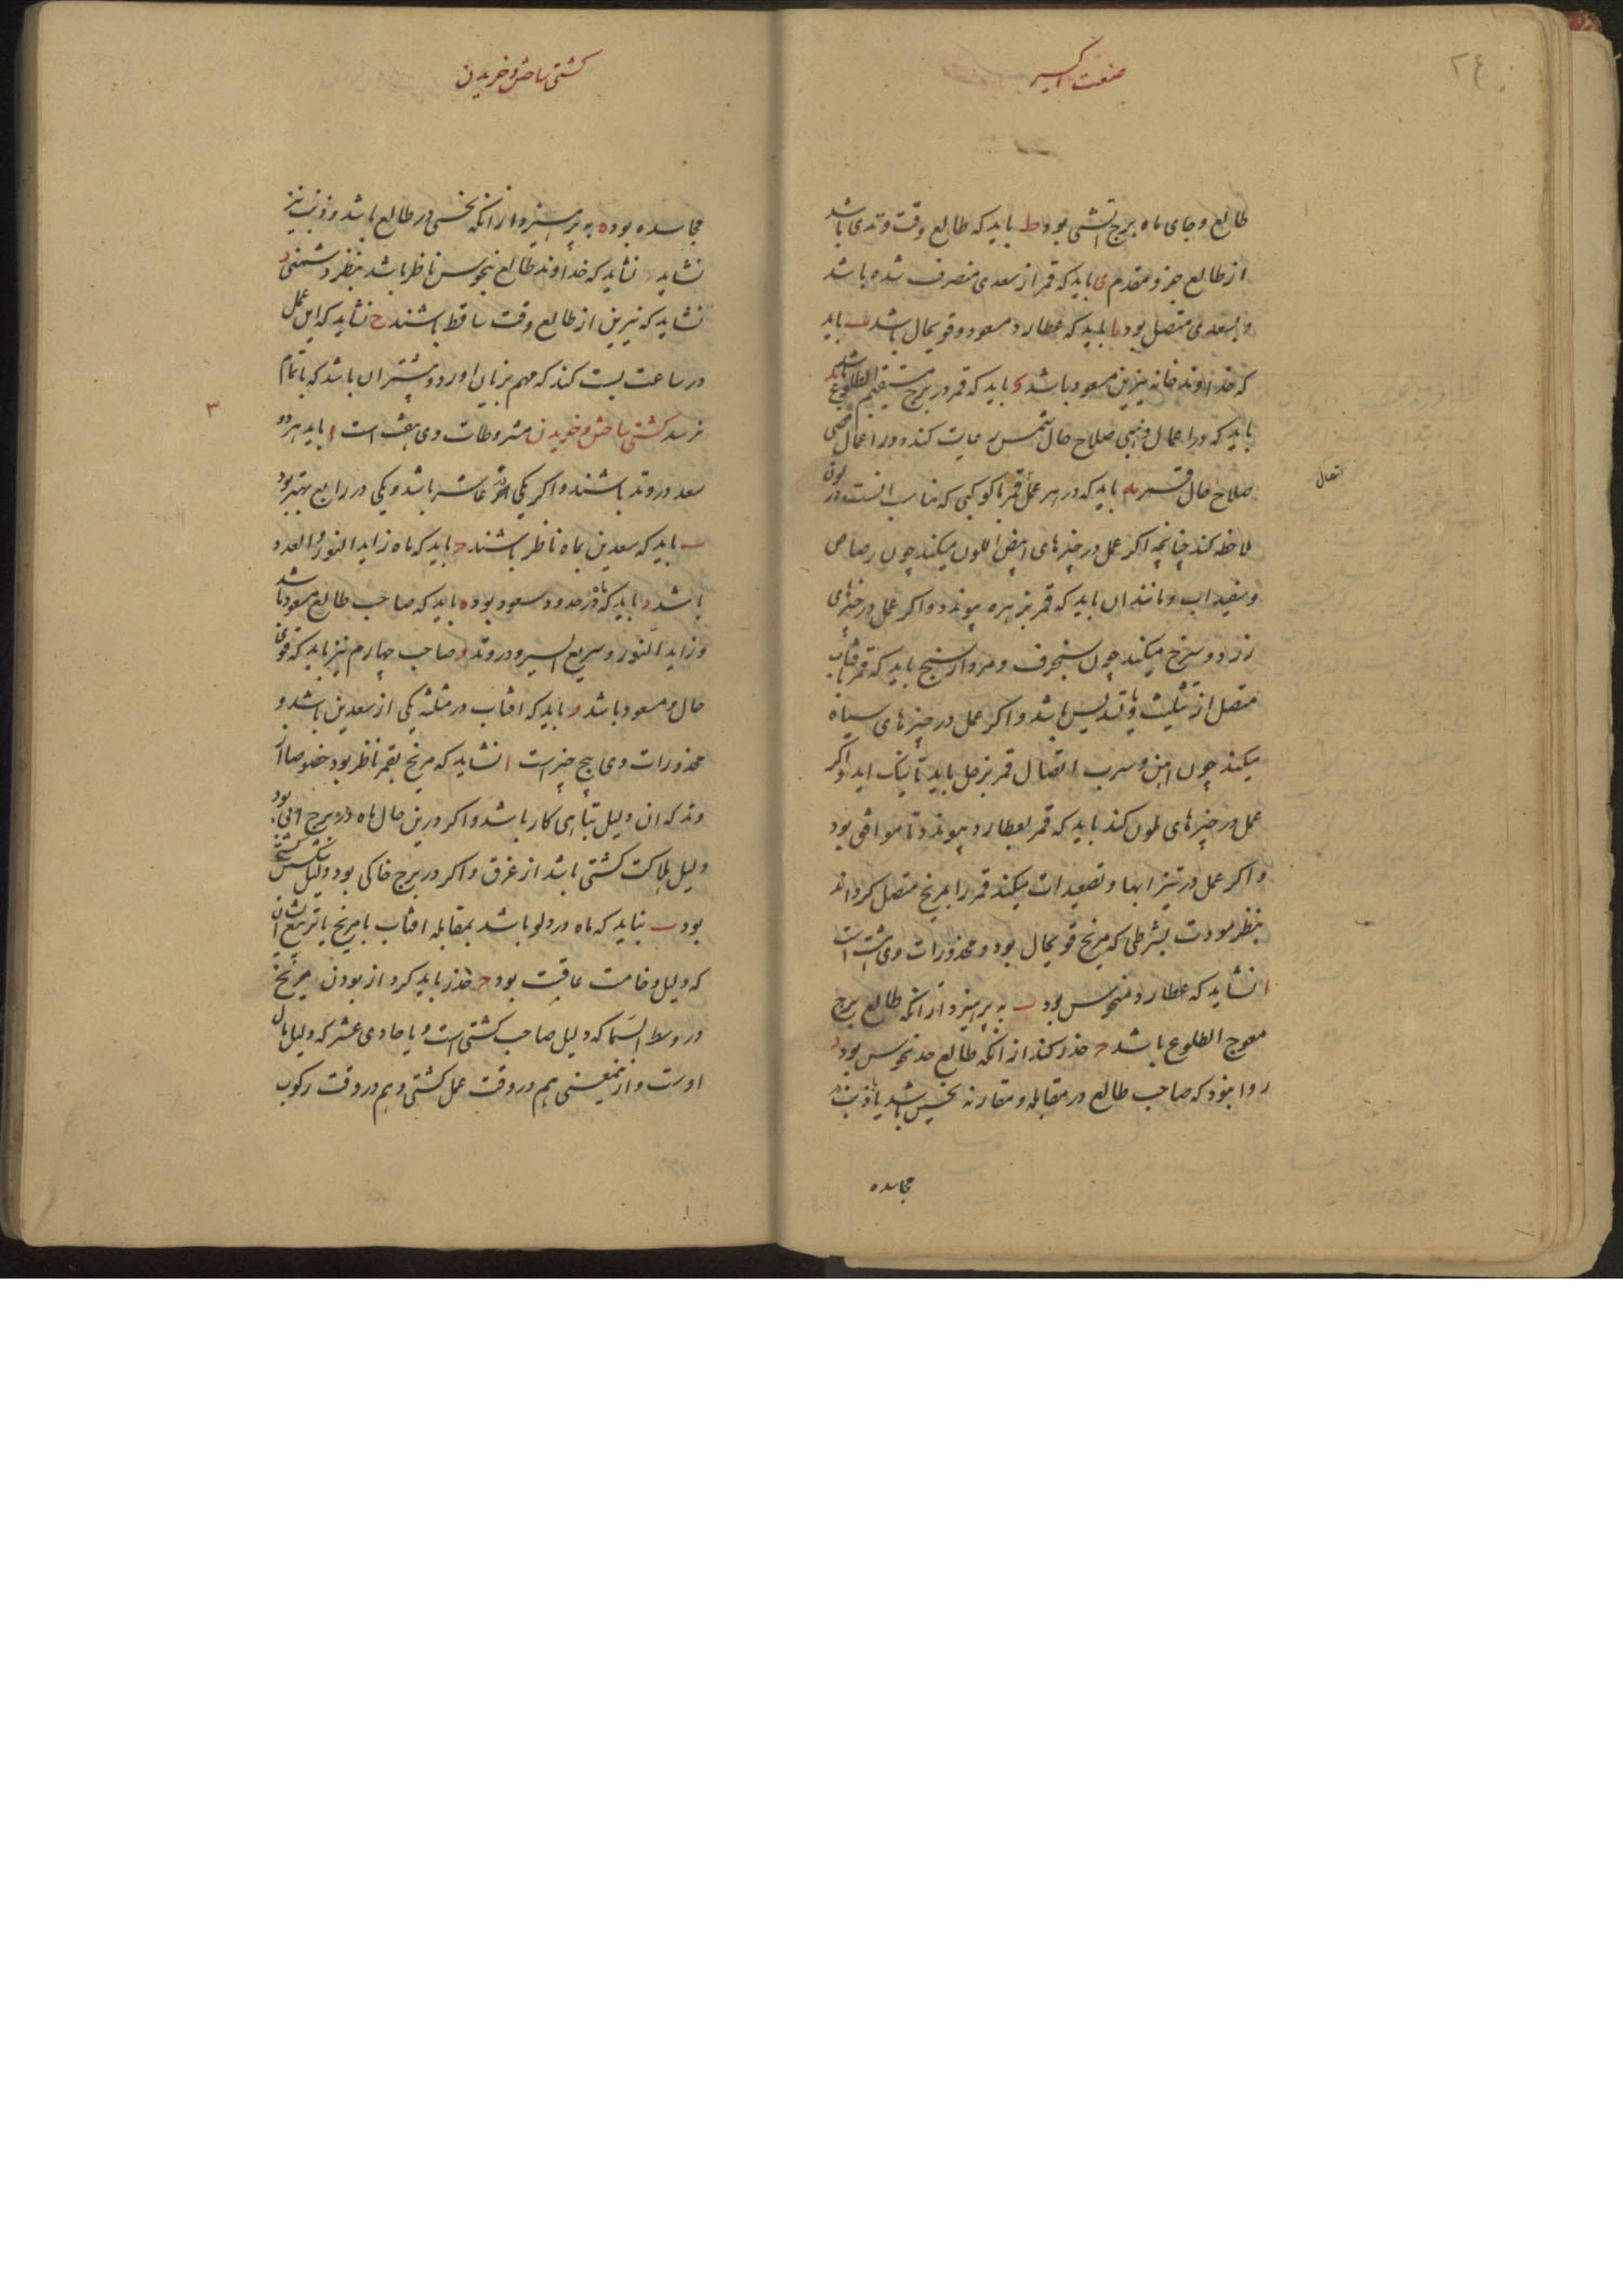 صنعت اکسیر
۲۴
طالع و جای ماه برج آتشی بود ط باید که طالع وقت وتدی باشد
از طالع جزو مقدم ی باید که قمر از سعدی منصرف شده باشد
و بسعدی متصل بود یا باید که عطارد مسعود و قویحال باشد یب باید
که خداوند خانه نیرین مسعود باشد یج باید که قمر در برج مستقیم الطلوع باشد ید
باید که در اعمال ذهبی صلاح حال شمس رعایت کند و در اعمال فضی
صلاح حال قمر یه باید که در هر عمل قمر با کوکبی که مناسب انست در لون
اتصال
ملاحظه کند چنانچه اگر عمل در چیزهای ابیض اللون میکند چون رصاص
و سفیداب و مانند ان باید که قمر بزهره پیوندد و اگر عمل در چیزهای
زرد و سرخ میکند چون سنجرف و مردارسنج باید که قمر بافتاب
متصل از تثلیث یا تسدیس باشد و اگر عمل در چیزهای سیاه
میکند چون آهن و سرب اتصال قمر بزحل باید تا نیک اید و اگر
عمل در چیزهای ملون کند باید که قمر بعطارد پیوندد تا موافق بود
و اگر عمل در تیزابها و تصعیدات میکند قمر را بمریخ متصل گرداند
بنظر مودت بشرطی که مریخ قویحال بود و محذورات وی هشت است
ا نشاید که عطارد منحوس بود ب به پرهیزد از انکه طالع برج
معوج الطلوع باشد ج حذر کند از انکه طالع حد نحوس بود د
روا نبود که صاحب طالع در مقابله و مقارنه نحسین باشد یا ذنب
مجاسده
کشتی ساختن و خریدن
مجاسده بود ه به پرهیزد از انکه نحسی در طالع باشد و ذنب نیز
نشاید نشاید که خداوند طالع نحوس ناظر باشد بنظر دشمنی
نشاید که نیرین از طالع وقت ساقط باشند ح نشاید که این عمل
در ساعت بست کند که مهم بزیان اورد و بیشتر ان باشد که باتمام
۳
نرسد کشتی ساختن و خریدن مشروطات وی هفت است ا باید هر دو
سعد در وتد باشند و اگر یکی در عاشر باشد و یکی در رابع بهتر بود
ب باید که سعدین بماه ناظر باشند ج باید که ماه زاید النور و العدد
باشد د باید که ماه در حدود سعود بود ه باید که صاحب طالع مسعود باشد
و زاید النور و سریع السیر و در وتد و صاحب چهارم نیز باید که قوی
حال و مسعود باشد ز باید که افتاب در مثلثه یکی از سعدین باشد و
محذورات وی پنج چیز است ا نشاید که مریخ بقمر ناظر بود خصوصا از
وتد که ان دلیل تباهی کار باشد و اگر درین حال ماه در برج ابی بود
دلیل هلاکت کشتی باشد از غرق و اگر در برج خاکی بود دلیل شکستن کشتی
بود ب نباید که ماه در دلو باشد بمقابله افتاب یا مریخ یا تربیع ایشان
که دلیل وخامت عاقبت بود ج حذر باید کرد از بودن مریخ
در وسط السما که دلیل صاحب کشتی است و یا حادی عشر که دلیل مال
اوست و ازینمعنی هم در وقت عمل کشتی و هم در وقت رکوب